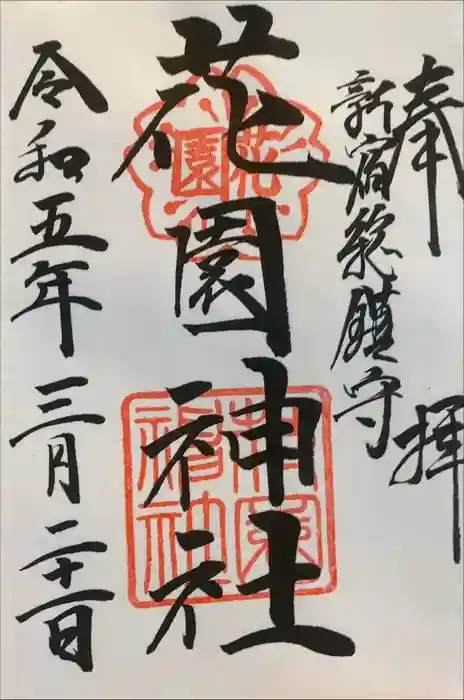 奉拝
新宿総鎮守
花園
花園神社
花園神社
令和五年三月二十一日